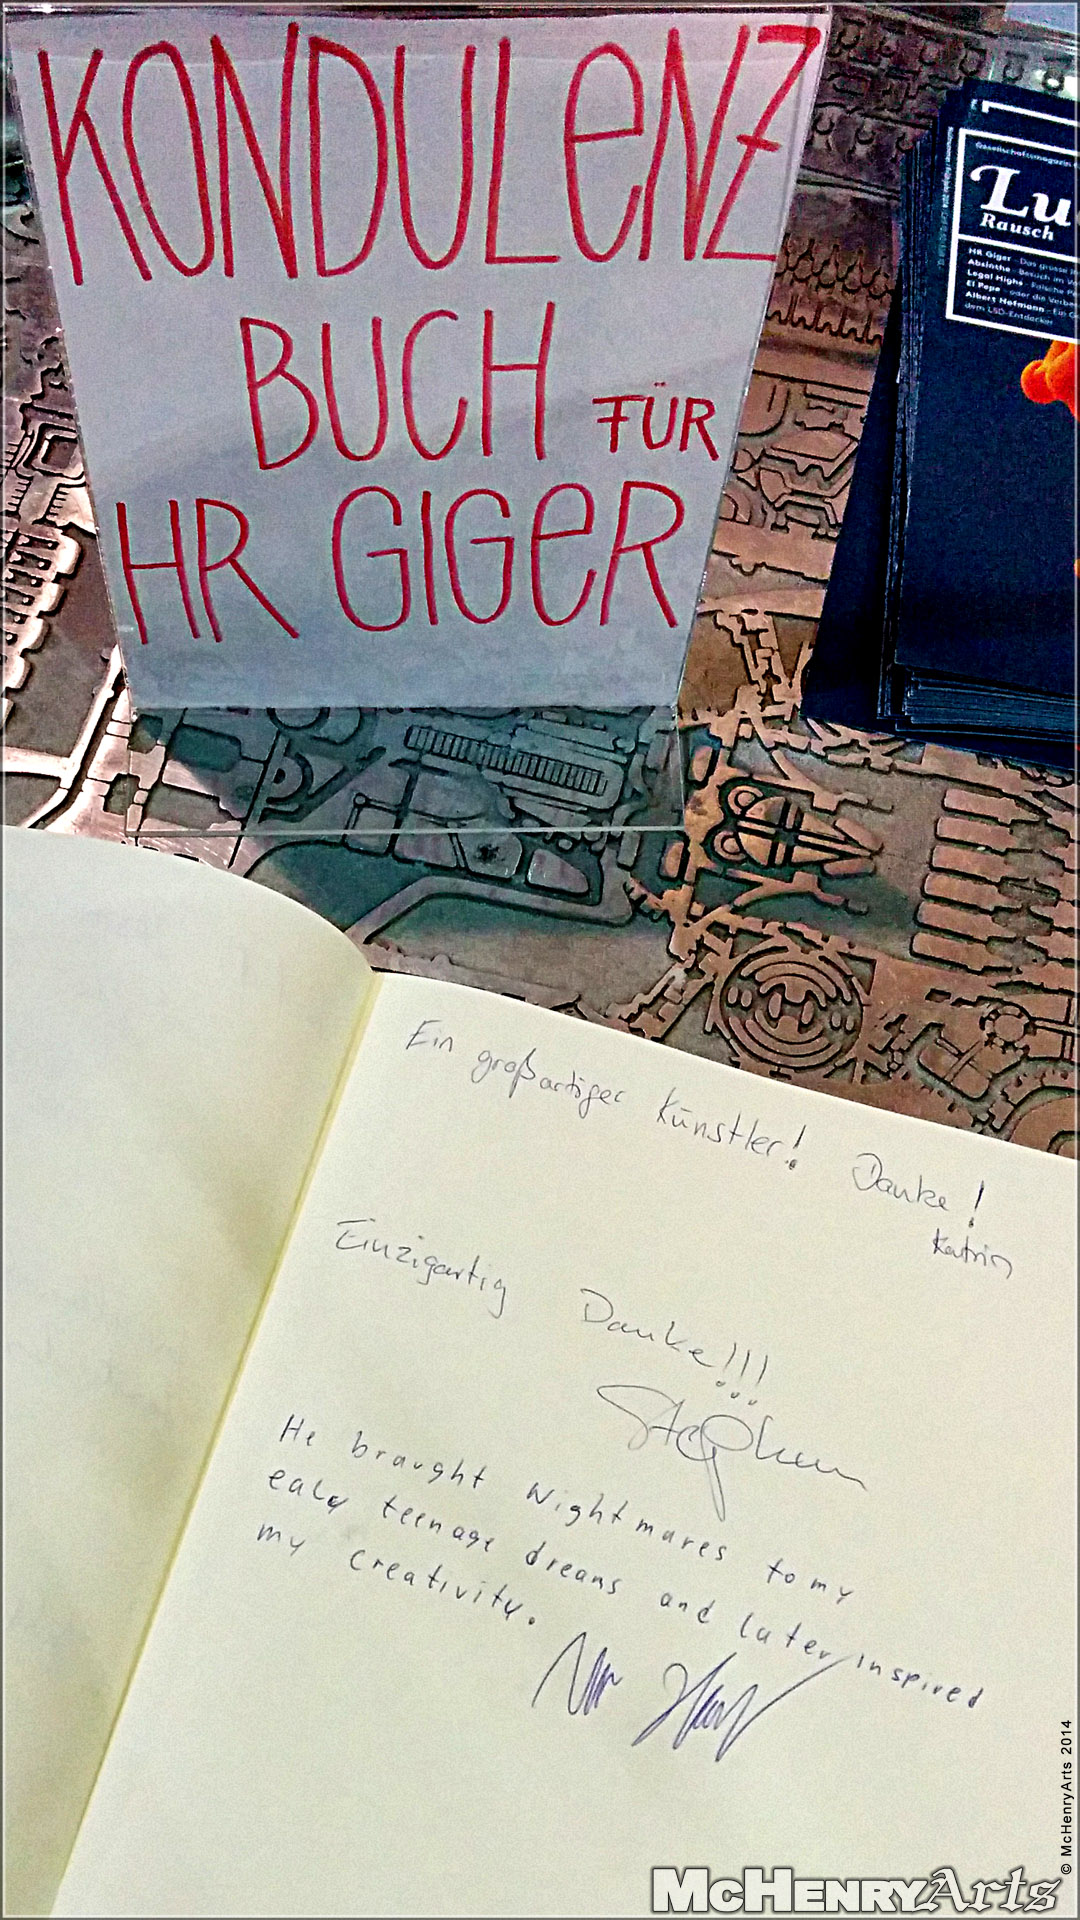 KONDULENZ
BUCH FÜR
HR GIGER
Gesellschaftsmagazin
Lu
Rausch
HR Giger - Das grosse
Absinthe - Besuch im
Legal Highs - Falsche
El Pepe - oder die
Albert Hofmann - Ein
dem LSD-Entdecker
Ein großartiger Künstler! Danke!
Katrin
Einzigartig Danke!!!
He braught Nightmares to my
ealy teenage dreams and later inspired
my creativity.
© McHenryArts 2014
McHenryArts